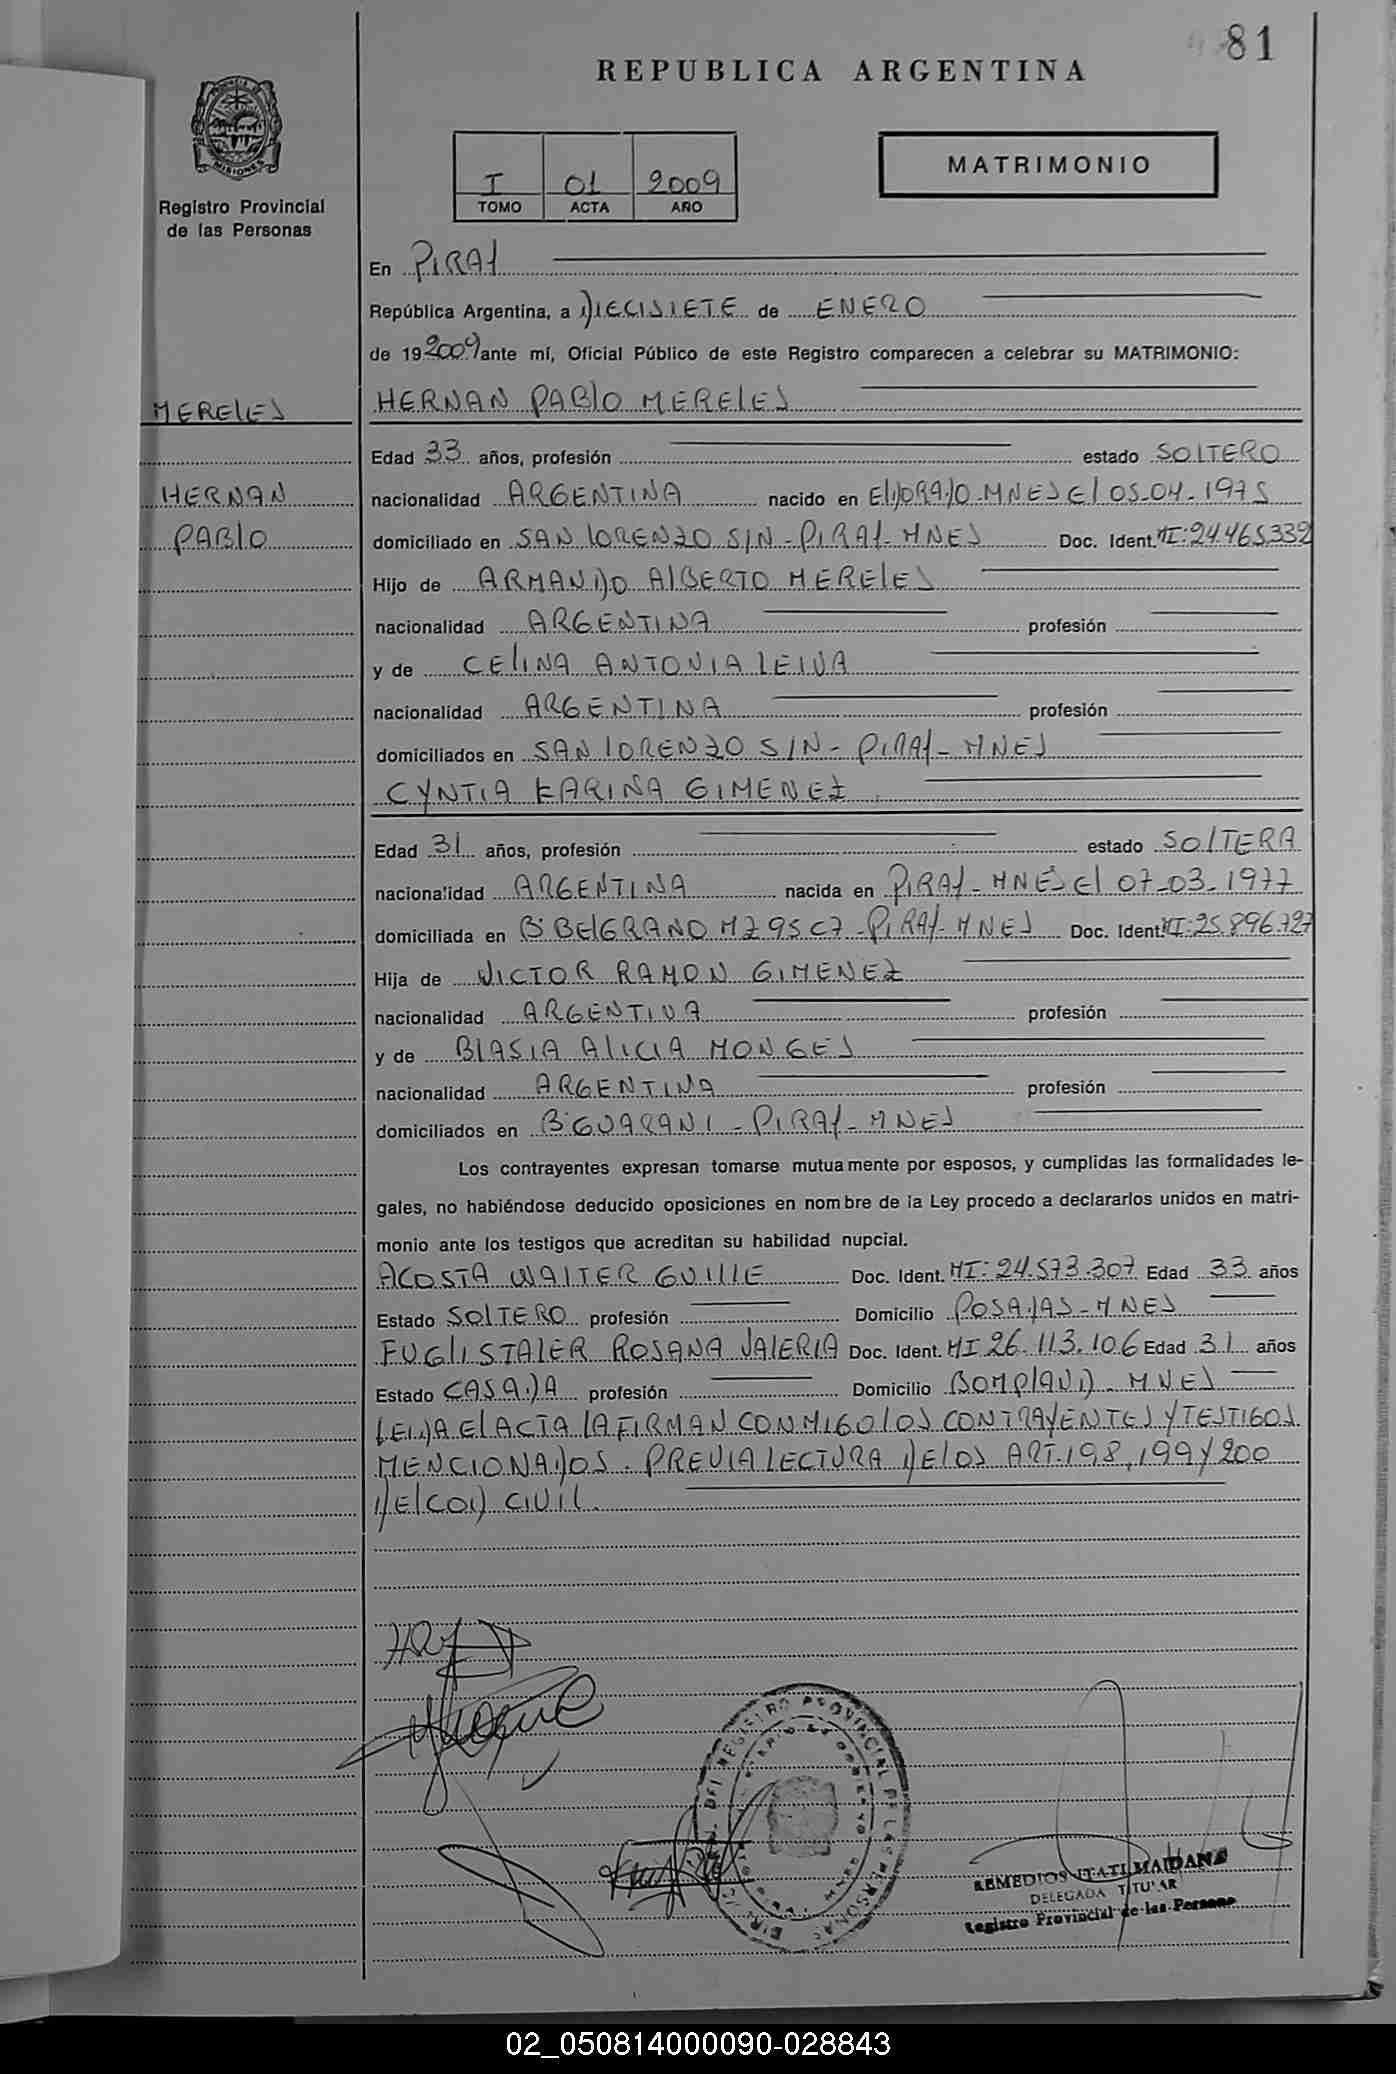 81
REPUBLICA ARGENTINA
PROVINCIA DE
MISIONES
Registro Provincial
de las Personas
I 01 2009
TOMO ACTA AÑO
MATRIMONIO
En PIRAY
República Argentina, a DIECISIETE de ENERO
de 19 2009 ante mí, Oficial Público de este Registro comparecen a celebrar su MATRIMONIO:
MERELES
HERNAN PABLO MERELES
Edad 33 años, profesión estado SOLTERO
HERNAN
nacionalidad ARGENTINA nacido en ELDORADO-MNES EL 05-04-1975
PABLO
domiciliado en SAN LORENZO S/N - PIRAY - MNES Doc. Ident. MI:24.465.332
Hijo de ARMANDO ALBERTO MERELES
nacionalidad ARGENTINA profesión
y de CELINA ANTONIA LEIVA
nacionalidad ARGENTINA profesión
domiciliados en SAN LORENZO S/N - PIRAY - MNES
CYNTIA KARINA GIMENEZ
Edad 31 años, profesión estado SOLTERA
nacionalidad ARGENTINA nacida en PIRAY - MNES EL 07-03-1977
domiciliada en Bº BELGRANO MZ 95 C7 - PIRAY - MNES Doc. Ident. MI:25.896.727
Hija de VICTOR RAMON GIMENEZ
nacionalidad ARGENTINA profesión
y de BLASIA ALICIA MONGES
nacionalidad ARGENTINA profesión
domiciliados en Bº GUARANI - PIRAY - MNES
Los contrayentes expresan tomarse mutuamente por esposos, y cumplidas las formalidades le-
gales, no habiéndose deducido oposiciones en nombre de la Ley procedo a declararlos unidos en matri-
monio ante los testigos que acreditan su habilidad nupcial.
ACOSTA WALTER GUILLE Doc. Ident. MI: 24.573.307 Edad 33 años
Estado SOLTERO profesión Domicilio POSADAS - MNES
FUGLISTALER ROSANA VALERIA Doc. Ident. MI 26.113.106 Edad 31 años
Estado CASADA profesión Domicilio BOMPLAND - MNES
LEIDA EL ACTA LA FIRMAN CONMIGO LOS CONTRAYENTES Y TESTIGOS
MENCIONADOS. PREVIA LECTURA DE LOS ART. 198, 199 Y 200
DEL COD CIVIL.
REGISTRO PROVINCIAL DE LAS PERSONAS
REMEDIOS ITATI MAIDANA
DELEGADA TITULAR
Registro Provincial de las Personas
02_050814000090-028843